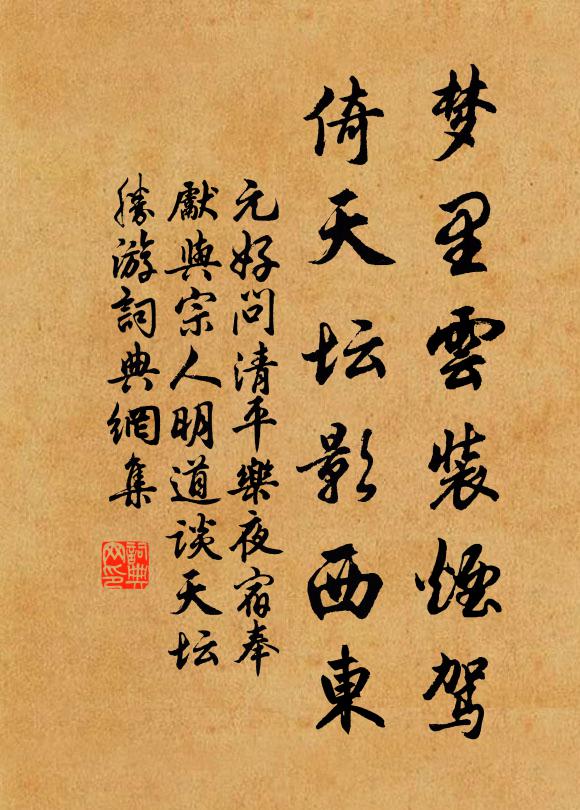 梦里雲裝煙駕
倚天坛影西東
元好问清平樂夜宿奉
獻與宗人明道谈天坛
勝游詞典網集
詞典网印